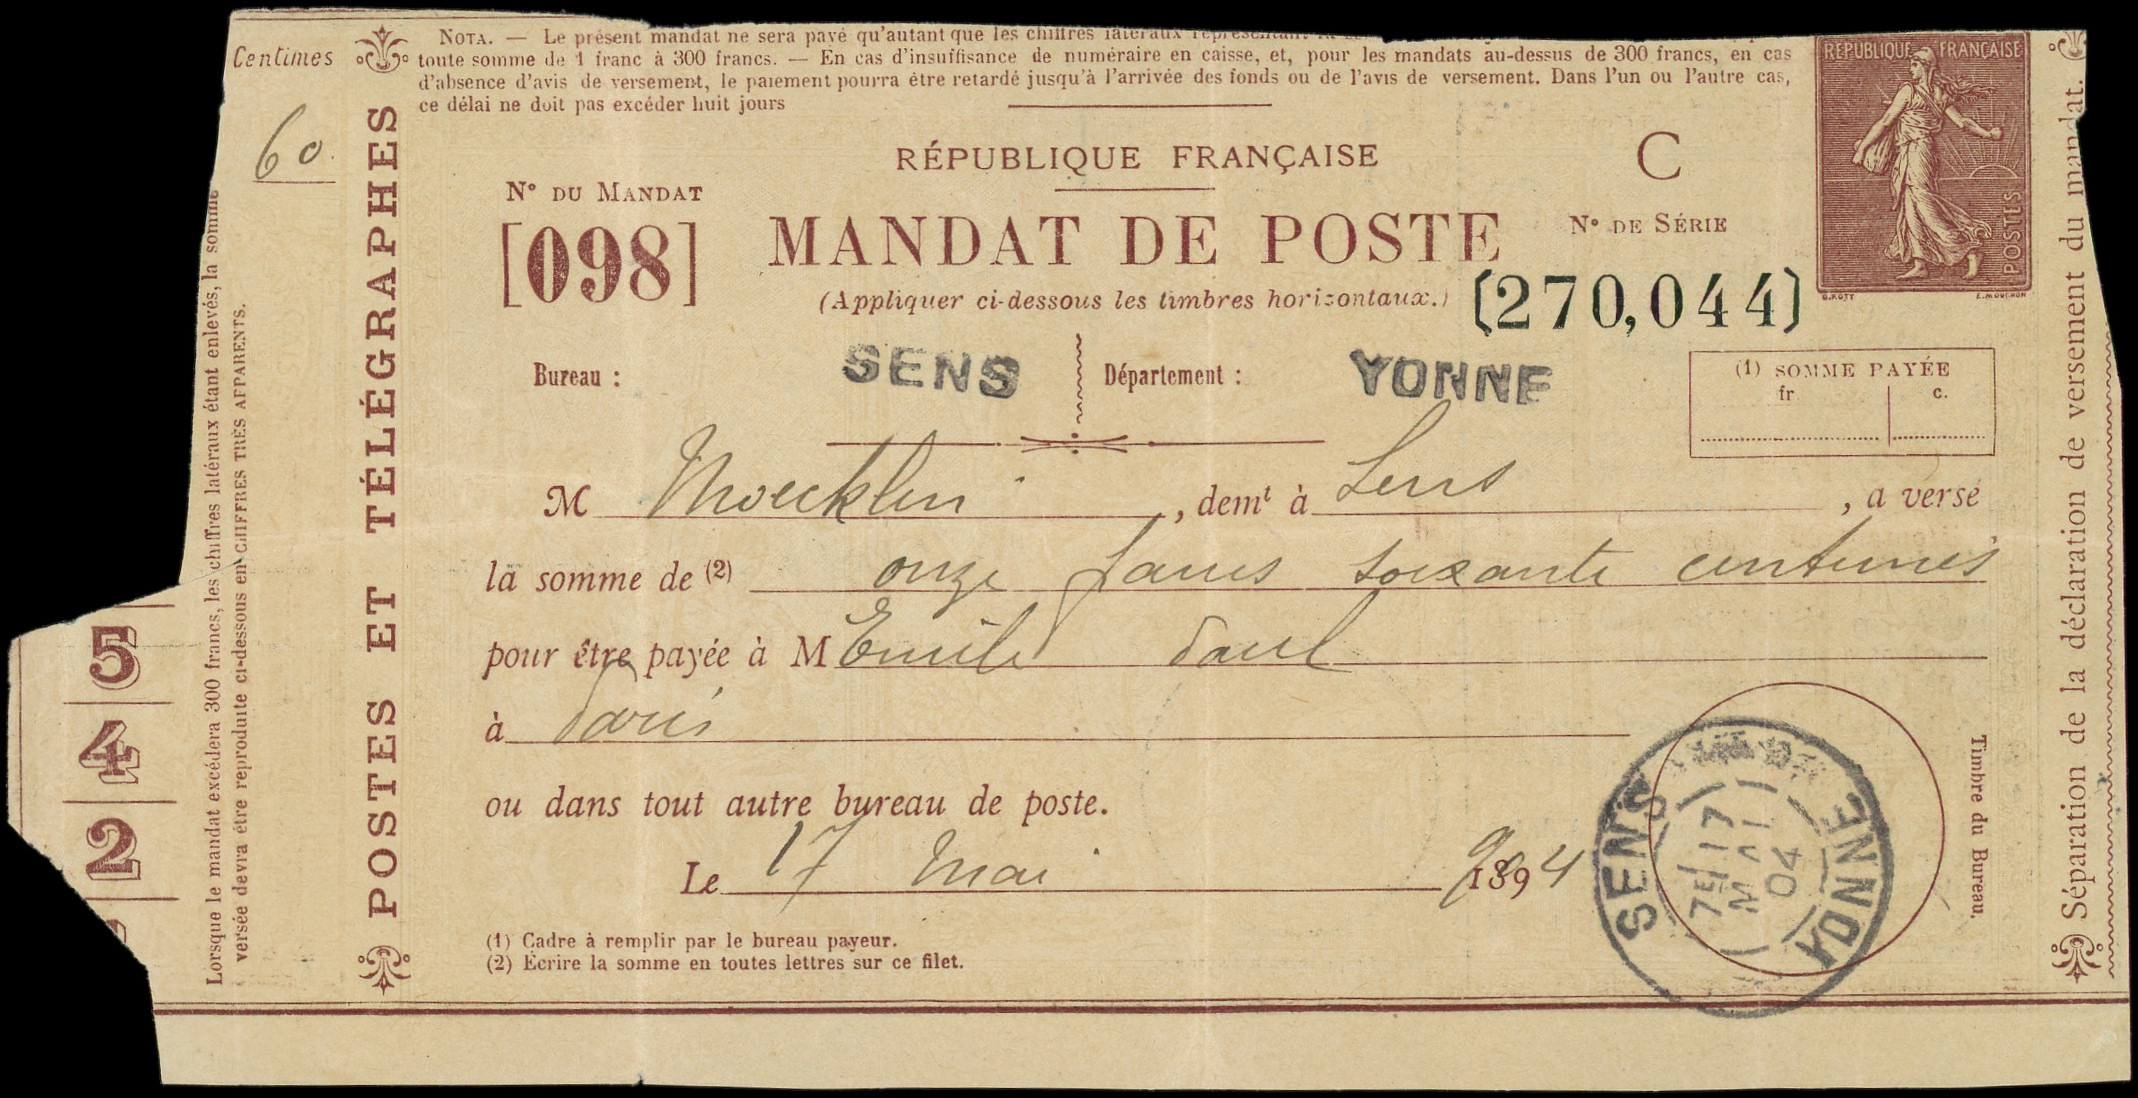 Centimes
60
NOTA. — Le présent mandat ne sera payé qu'autant que les chiffres latéraux
toute somme de 1 franc à 300 francs. — En cas d'insuffisance de numéraire en caisse, et, pour les mandats au-dessus de 300 francs, en cas
d'absence d'avis de versement, le paiement pourra être retardé jusqu'à l'arrivée des fonds ou de l'avis de versement. Dans l'un ou l'autre cas,
ce délai ne doit pas excéder huit jours
RÉPUBLIQUE FRANÇAISE
POSTES
O.ROTY E.MOUCHON
RÉPUBLIQUE FRANÇAISE
C
N° DU MANDAT
[098]
MANDAT DE POSTE
N° DE SÉRIE
(270,044)
(Appliquer ci-dessous les timbres horizontaux.)
Bureau : SENS Département : YONNE
(1) SOMME PAYÉE
fr c.
M Moecklin, demt à Sens, a versé
la somme de (2) onze francs soixante centimes
pour être payée à M Emile Paul
à Paris
ou dans tout autre bureau de poste.
Le 17 Mai 1894
9
(1) Cadre à remplir par le bureau payeur.
(2) Écrire la somme en toutes lettres sur ce filet.
SENS
YONNE
7E 17
MAI
04
Timbre du Bureau.
Séparation de la déclaration de versement du mandat.
POSTES ET TÉLÉGRAPHES
Lorsque le mandat excédera 300 francs, les chiffres latéraux étant enlevés, la somme
versée devra être reproduite ci-dessous en CHIFFRES TRÈS APPARENTS.
5
4
2